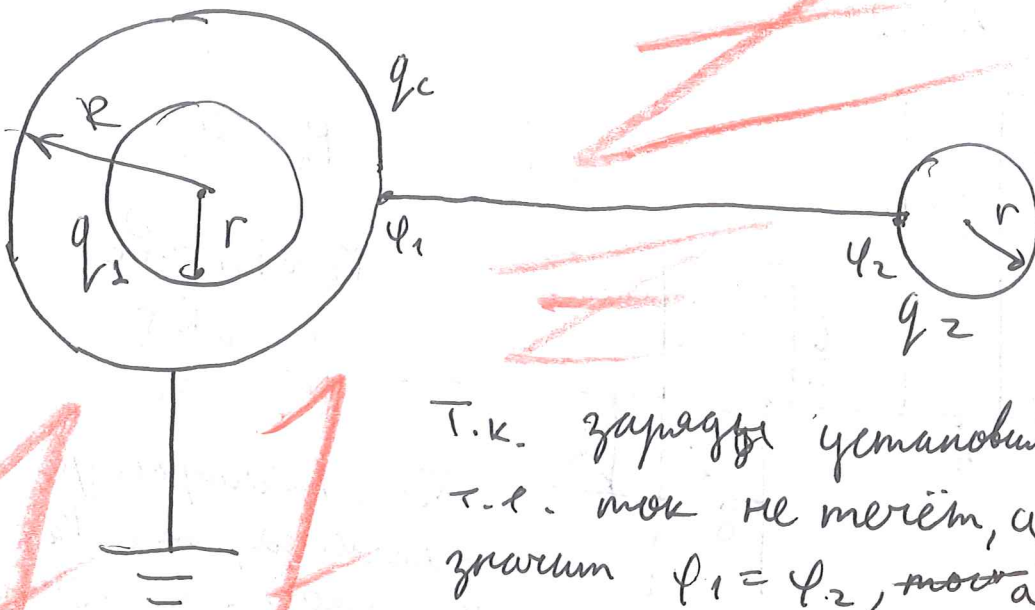 qc
R
r
q1
φ1
φ2
r
q2
Т.к. заряды установи
т.е. ток не течёт, а
значит φ1 = φ2, а